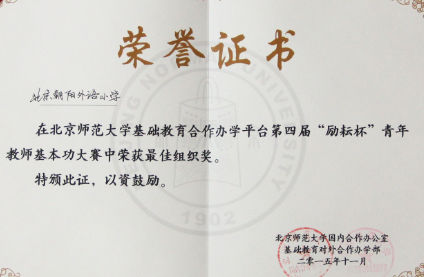 荣誉证书
北京朝阳外语小学
在北京师范大学基础教育合作办学平台第四届“励耘杯”青年
教师基本功大赛中荣获最佳组织奖。
特颁此证，以资鼓励。
1902
北京师范大学国内合作办公室
基础教育对外合作办学部
二〇一五年十一月